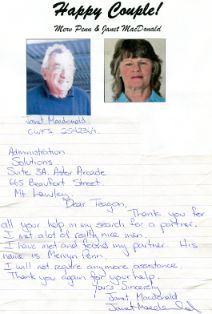 Happy Couple!
Merv Penn & Janet MacDonald
Janet Macdonald
CWFS
Administration
Solutions
Suite 3A. Astor Arcade
665 Beaufort Street
Mt Lawley
Dear Teagan,
Thank you for
all your help in my search for a partner.
I met a lot of really nice men.
I have met and found my partner. His
name is Mervyn Penn.
I will not require any more assistance.
Thank you again for your help.
Yours Sincerely
Janet Macdonald